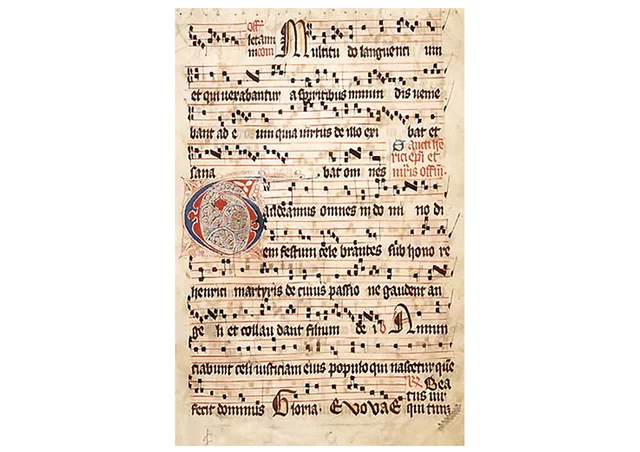 Multitu do languenti um
et qui vexabantur a spiritibus inmun dis venie
bant ad e um quia virtus de illo exi bat et
Sancti hē
rici epi et
sana bat om nes m̄ris offm̄
Gaudeamus omnes in do mi no di
em festum cele brantes sub hono re
henrici martyris de cuius passio ne gaudent an
ge li et collau dant filium de i Annun
ciabunt celi iusticiam eius populo qui nascetur que
Bea
tus vir
fecit dominus Gloria. Evovae qui tim